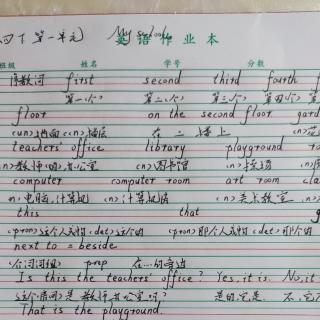 四下第一单元 My school
英语作业本
班级 姓名 学号 分数
序数词 first second third fourth
第一(个) 第二(个) 第三(个) 第四(个) 第
floor on the second floor gard
(un)地面(cn)楼层 在二楼上
teachers' office library playground
(n)教师(的)办公室 (n)图书馆 (n)操场 (n)
computer computer room art room cla
n)电脑,计算机 (n)计算机房 (n)美术教室
this that
(pron)这个人或物(det)这个的 (pron)那个人或物(det)那个的
next to = beside
(介词词组) prep 在...的旁边
Is this the teachers' office? Yes, it is. No, it
这(个)房间是教师办公室吗? 是的,它是. 不,它
That is the playground.